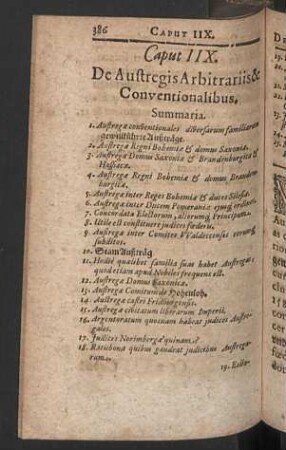 386 CAPUT IIX.
Caput IIX.
De Austregis Arbitrariis &
Conventionalibus.
Summaria.
1. Austregæ conventionales diversarum familiarum
gewillkührte Außträge.
2. Austregæ Regni Bohemiæ & domus Saxoniæ.
3. Austregæ Domus Saxoniæ & Brandenburgicæ &
Hassiacæ.
4. Austregæ Regni Bohemiæ & domus Brandenburgicæ.
5. Austregæ inter Reges Bohemiæ & duces Silesiæ.
6. Austregæ inter Ducem Pomeraniæ ejusq́
7. Concordata Electorum, aliorumq́ Principum.
8. Utile est constituere judices fœderis.
9. Austregæ inter Comites VValdeccenses
subditos.
10. Stam Außträg
11. Hodiè quælibet familia suas habet Austregas
quod etiam apud Nobiles frequens est.
12. Austregæ Domus Saxonicæ.
13. Austregæ Comitum de Hohenloh.
14. Austregæ castri Fridburgensis.
15. Austregæ civitatum liberarum Imperii.
16. Argentoratum quosnam habeat judices Austregales.
17. Judices Norimbergæ quinam?
18. Ratisbona quibus gaudeat judicibus Austregarum.
19.